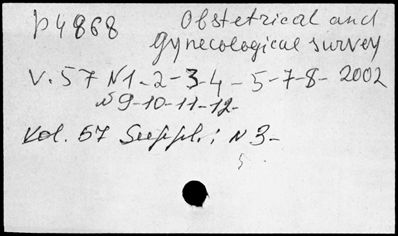 p4868 Obstetrical and
gynecological survey
V. 57 N1-2-3-4-5-7-8- 2002
N9-10-11-12-
Vol. 57 Suppl.: N 3-